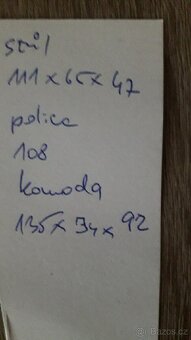 stůl
111 x 65 x 47
police
108
komoda
135 x 34 x 92
© Bazoš.cz